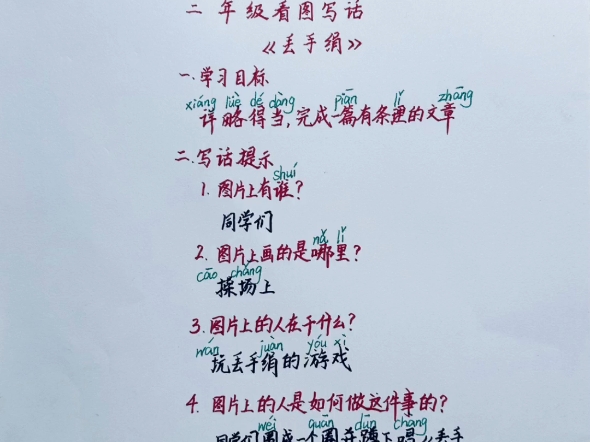 二年级看图写话
《丢手绢》
一.学习目标
xiáng lüè dé dàng piān lǐ zhāng
详略得当,完成一篇有条理的文章
二.写话提示
shuí
1. 图片上有谁?
同学们
nǎ lǐ
2. 图片上画的是哪里?
cāo chǎng
操场上
3.图片上的人在干什么?
wán juàn yóu xì
玩丢手绢的游戏
4. 图片上的人是如何做这件事的?
wéi quān dūn chàng
同学们围成一个圈并蹲下唱